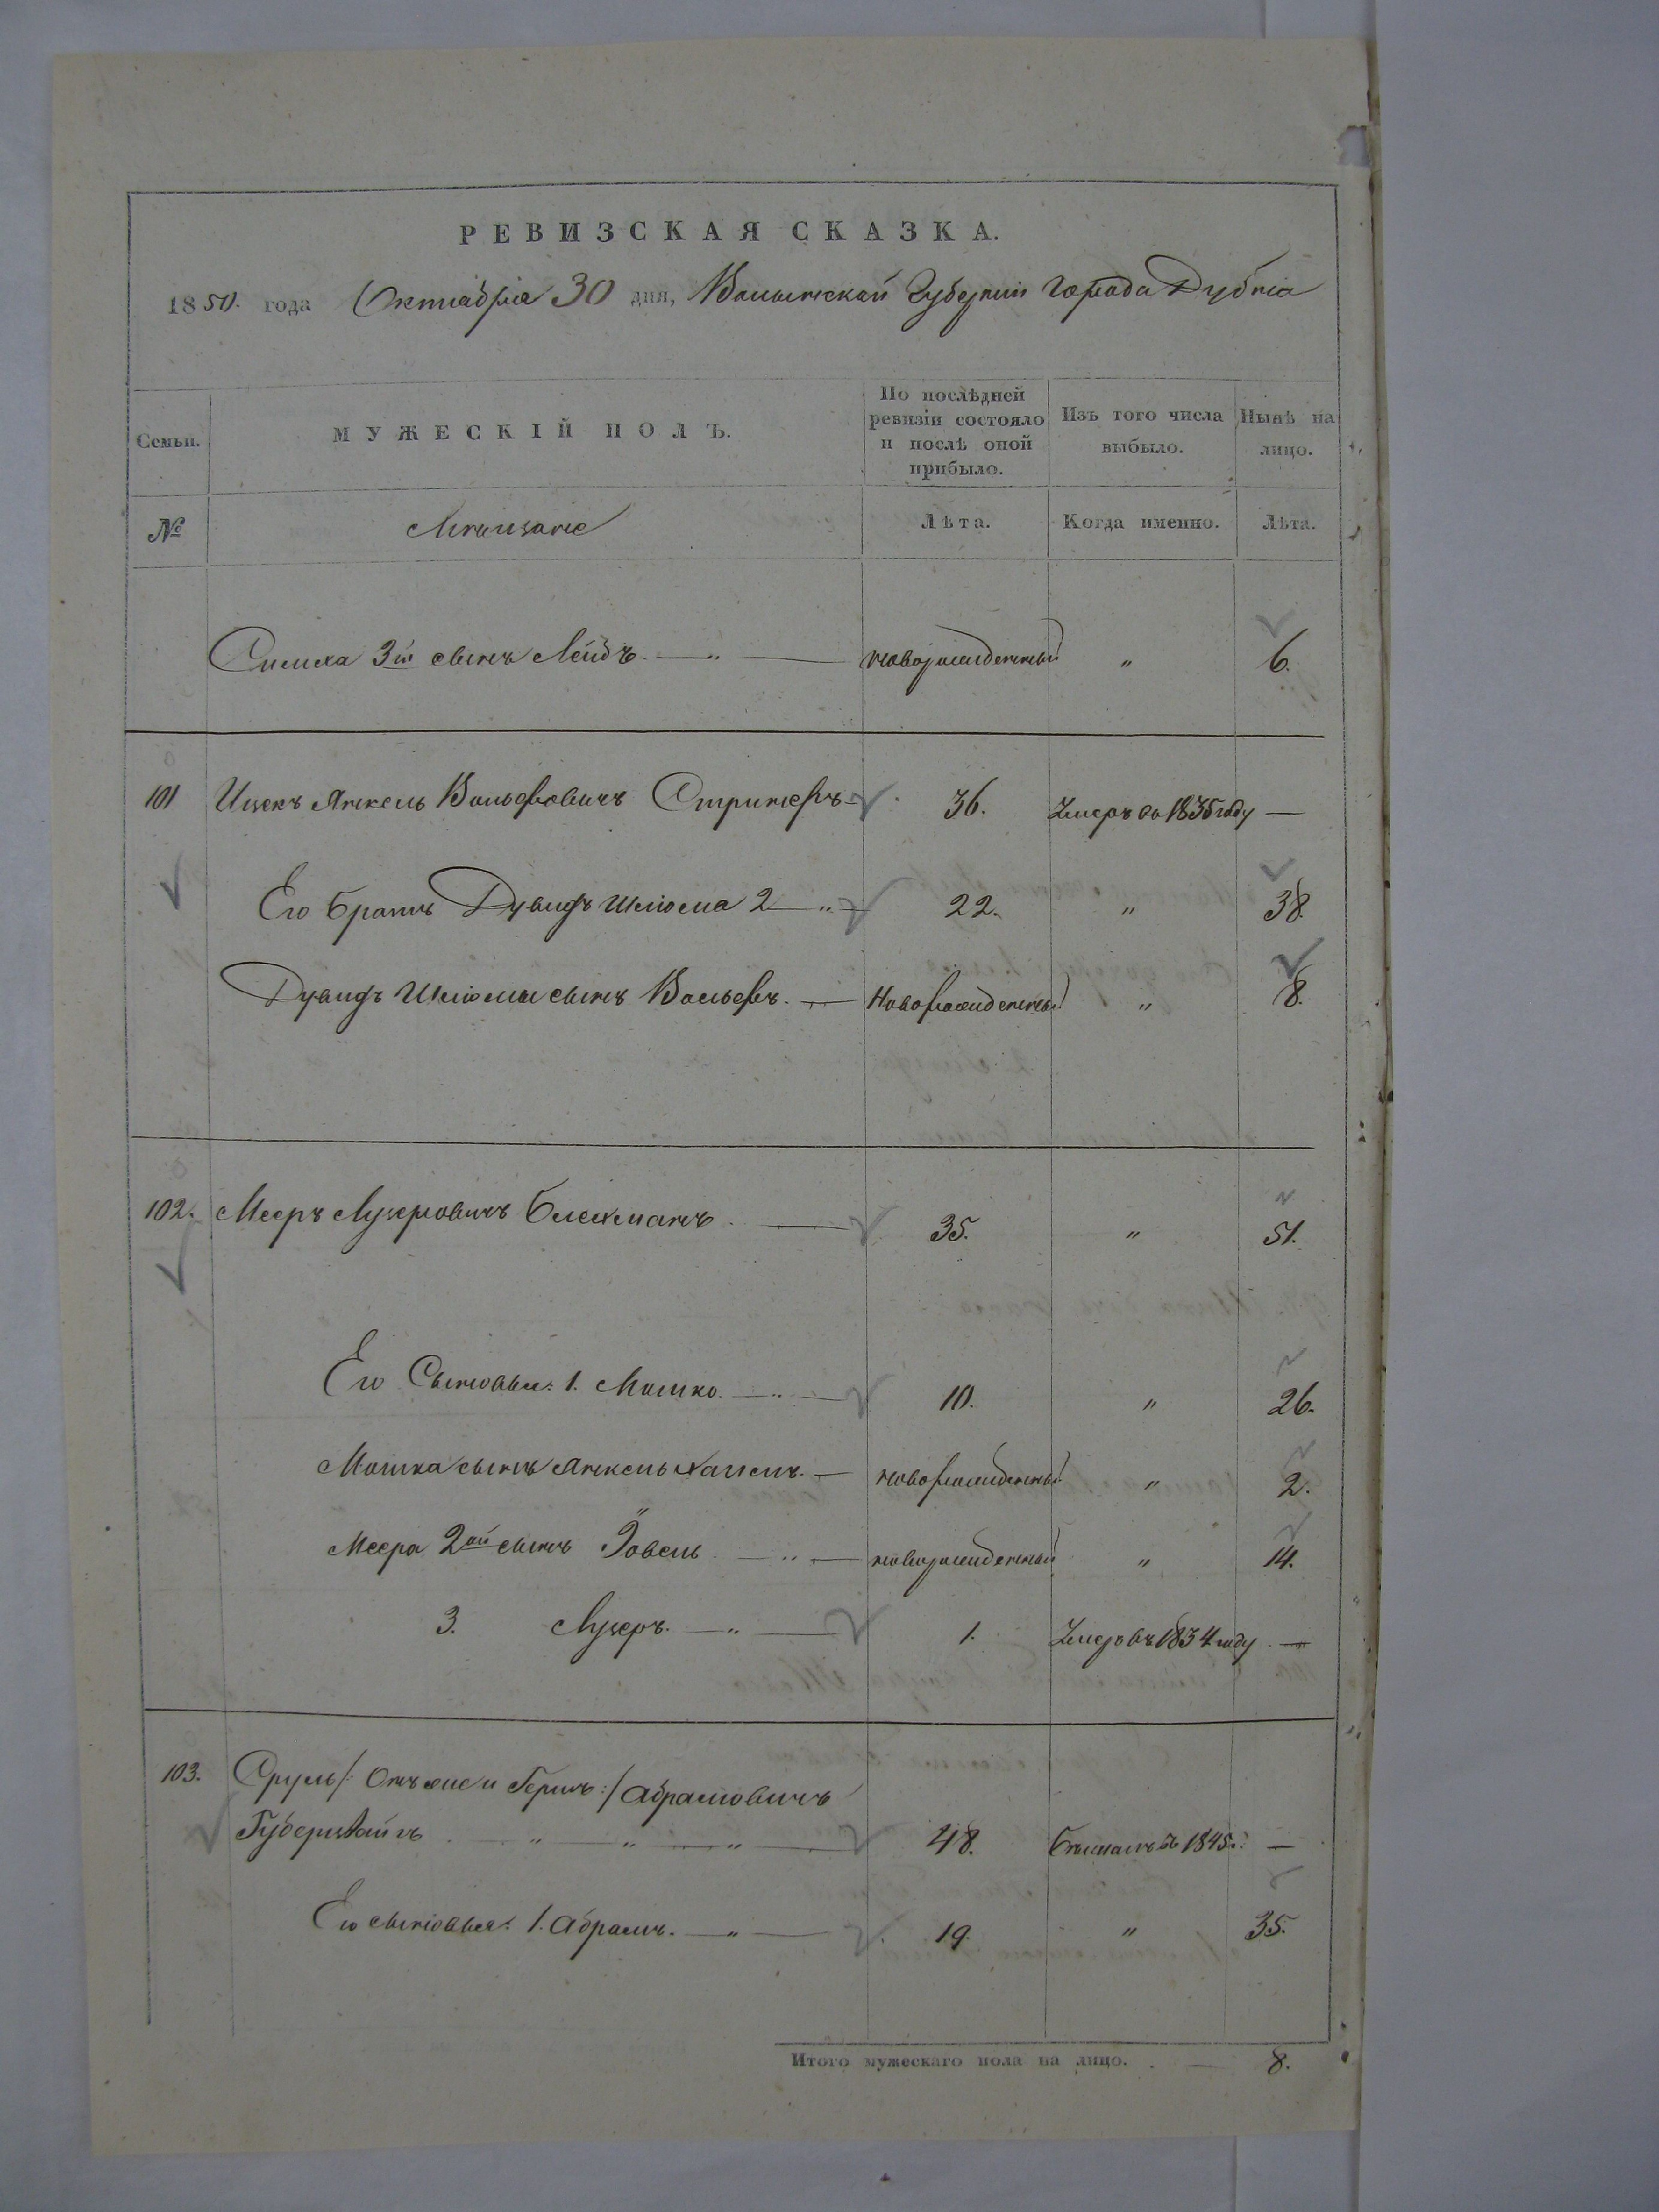 РЕВИЗСКАЯ СКАЗКА.
1850. года Октября 30 дня, Волынской Губернии города Дубна
Семьи.
МУЖЕСКІЙ ПОЛЪ.
По послѣдней
ревизіи состояло
и послѣ оной
прибыло.
Изъ того числа
выбыло.
Нынѣ на
лицо.
№
Мещане
Лѣта.
Когда именно.
Лѣта.
Симха 3й сынъ Лейбъ — " — новорожденный " 6.
101 Ицекъ Янкель Вольфовичъ 36. Умеръ въ 1835 году —
Его братъ Дувидъ Шліома 2 — " — 22. " 38.
Дувидъ Шліомы сынъ Вольфъ. — новорожденный " 8.
102. Мееръ Лузеровичъ — 35. " 51.
Его Сыновья: 1. Мошко. — " — 10. " 26.
Мошка сынъ Янкель — новорожденный " 2.
Меера 2ой сынъ Іовель — " — новорожденный " 14.
3. Лузеръ. — " — 1. Умеръ въ 1834 году —
103. Сруль /: онъ же и Гершъ :/ Абрамовичъ
— " — " — " — 48. въ 1845. —
Его сыновья: 1. Абрамъ. — " — 19. " 35.
Итого мужескаго пола на лицо. — 8.